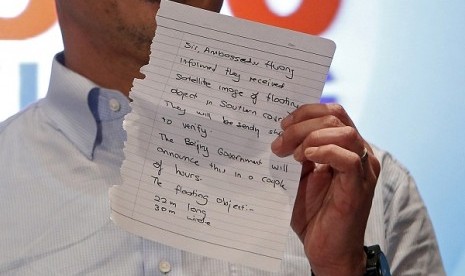 Sir, Ambassador Huang
informed they received
satellite image of floating
object in Southern
They will be sending
to verify.
The Beijing Government will
announce this in a couple
of hours.
The floating object:-
22m long
30m wide